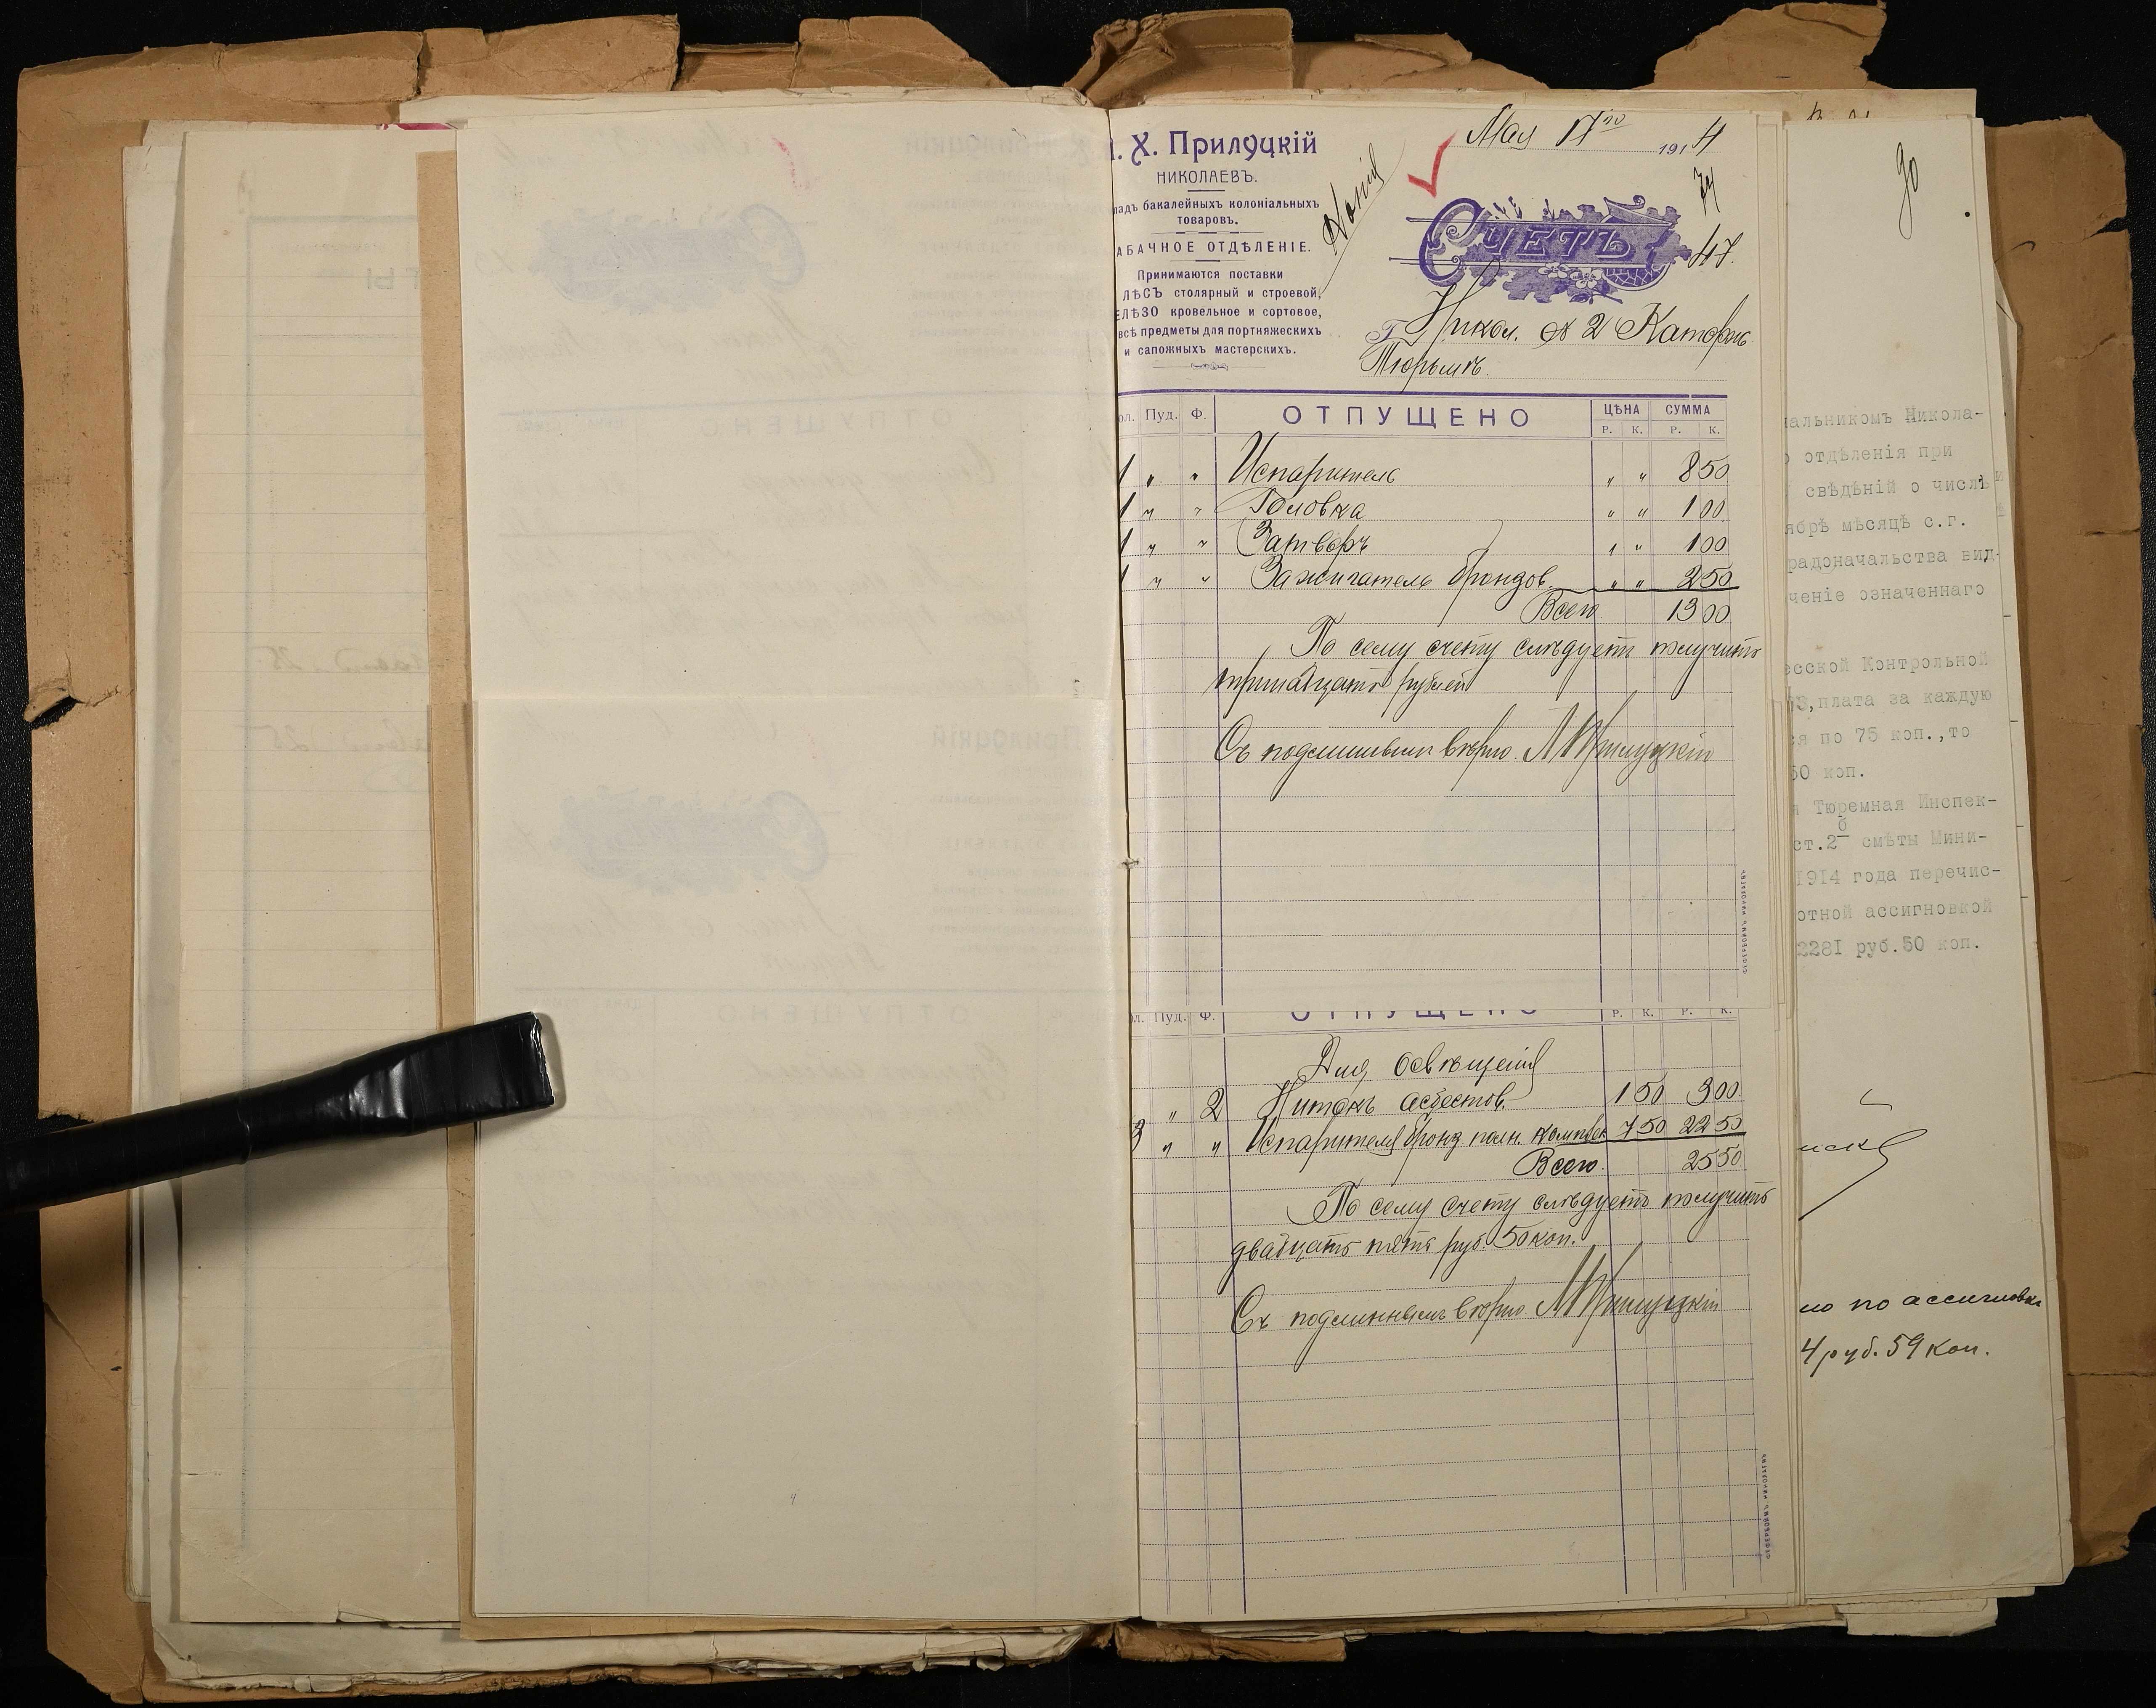 Х. Прилуцкій
НИКОЛАЕВЪ.
ладъ бакалейныхъ колоніальныхъ
товаровъ.
АБАЧНОЕ ОТДѢЛЕНІЕ.
Принимаются поставки
ЛѢСЪ столярный и строевой,
ЕЛѢЗО кровельное и сортовое,
всѣ предметы для портняжескихъ
и сапожныхъ мастерскихъ.
Копія
Мая 17го 1914
74
СЧЕТЪ
47.
Г. Никол. № 2 Каторжн.
Тюрьмѣ.
ол. Пуд. Ф. ОТПУЩЕНО ЦѢНА СУММА
Р. К. Р. К.
1 " " Испаритель " " 8 50
1 " " Головка " " 1 00
1 " " Затворъ " " 1 00
1 " " Зажигатель бронзов. " " 2 50
Всего 13 00
По сему счету слѣдуетъ получить
тринадцать рублей
Съ подлиннымъ вѣрно. М Прилуцкій
ол. Пуд. Ф. ОТПУЩЕНО Р. К. Р. К.
Для освѣщенія
" 2 Нитокъ асбестов. 1 50 3 00
3 " " Испарителя бронз. полн. комплек 7 50 22 50
Всего. 25 50
По сему счету слѣдуетъ получить
двадцать пять руб. 50 коп.
Съ подлиннымъ вѣрно М Прилуцкій
90
альникомъ Никола-
отдѣленія при
свѣдѣній о числѣ
ябрѣ мѣсяцѣ с.г.
радоначальства вид-
ченіе означеннаго
есской Контрольной
3, плата за каждую
я по 75 коп., то
50 коп.
Тюремная Инспек-
ст.2 б смѣты Мини-
1914 года перечис-
отной ассигновкой
2281 руб.50 коп.
но по ассигновкѣ
4 руб. 59 коп.